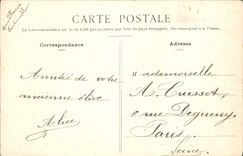 CARTE POSTALE
La Correspondance au recto n'est pas acceptée par tous les pays étrangers. Se renseigner à la Poste.
Correspondance
Adresse
Amitié de votre
ancienne élève
Alice
Mademoiselle
A. Cuissot
6 rue Deguerry
Paris
Seine